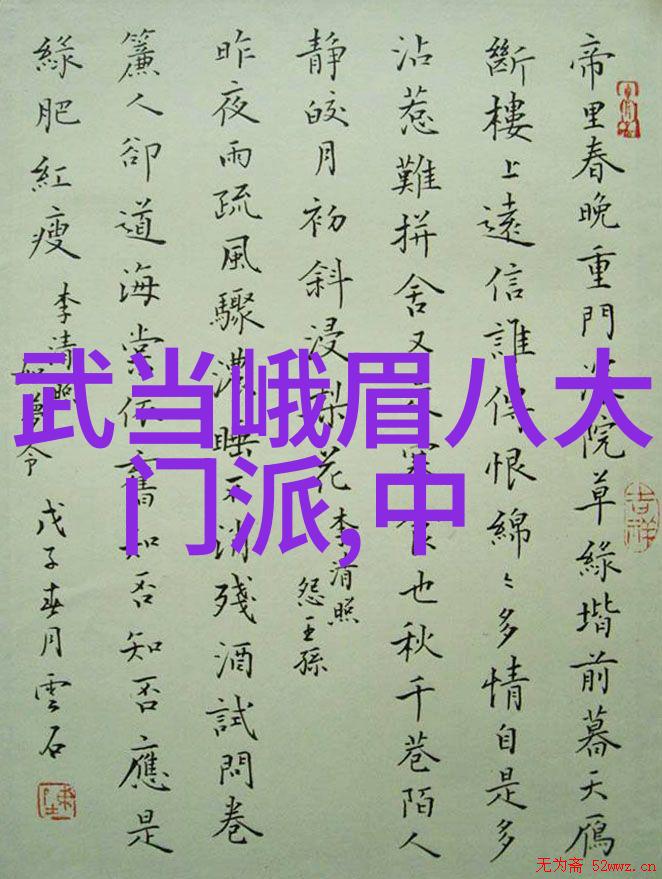 帝里春晚重門深院草綠堦前暮天鴈
斷樓上遠信誰傳恨綿〻多情自是多
沾惹難拼舍又是寒食也秋千巷陌人
静皎月初斜浸梨花
李清照
怨王孫
昨夜雨疏風驟濃睡不消殘酒試問卷
簾人卻道海棠依舊知否知否應是
綠肥紅瘦
李清照
如夢令
戊子春月雲石
吉祥
武当峨眉八大
门派,中
无为斋 52wwz.cn